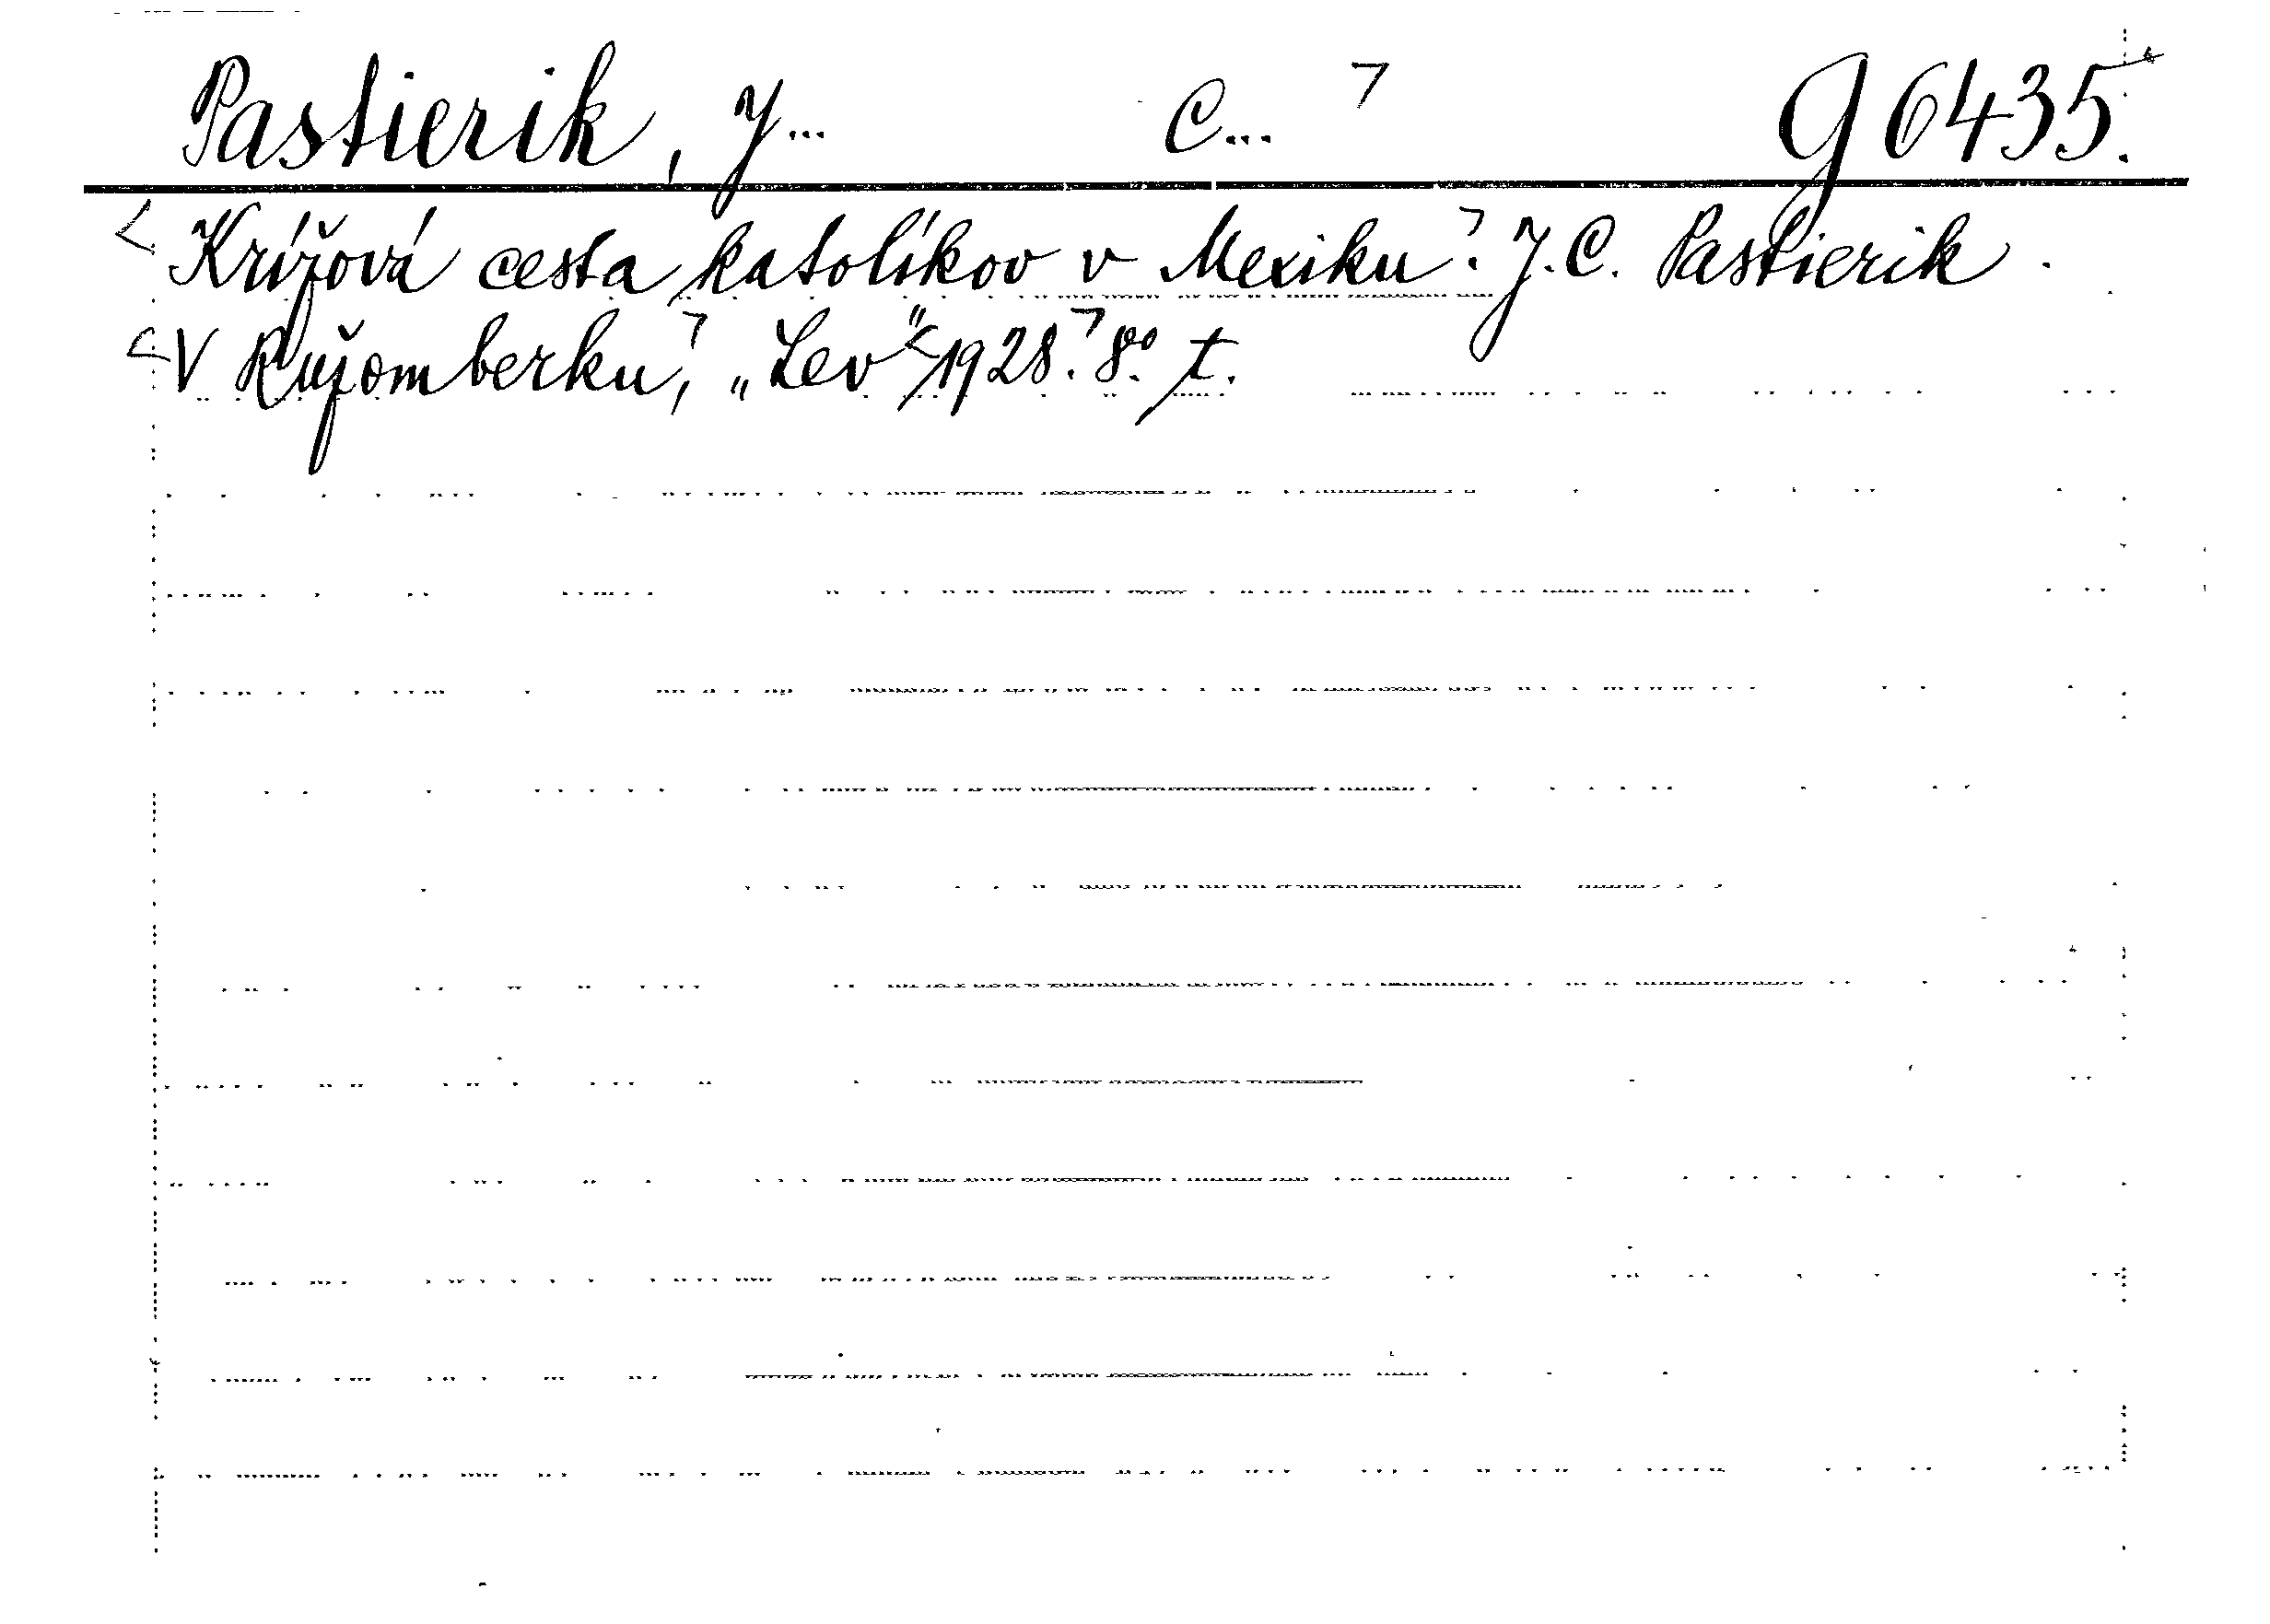 Pastierik, J... C... G 6435.
Krížová cesta katolíkov v Mexiku. J. C. Pastierik.
V Ružomberku, „Lev" 1928. 8° t.